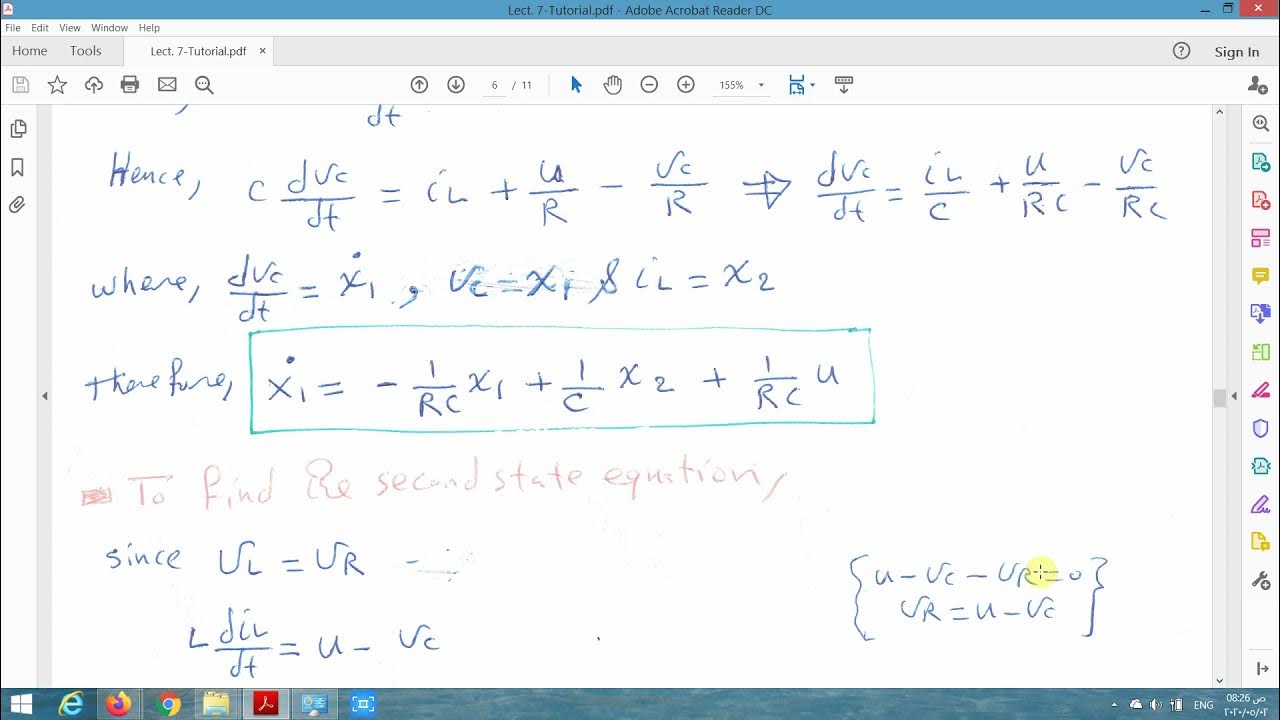 Lect. 7-Tutorial.pdf - Adobe Acrobat Reader DC
File Edit View Window Help
Home Tools Lect. 7-Tutorial.pdf × Sign In
6 / 11 155%
dt
Hence, C dVc/dt = iL + u/R - Vc/R ⇒ dVc/dt = iL/C + u/RC - Vc/RC
where, dVc/dt = ẋ1, Vc = x1 & iL = x2
therefore, ẋ1 = - 1/RC x1 + 1/C x2 + 1/RC u
To find the second state equation,
since VL = VR
{u - Vc - VR = 0
VR = u - Vc}
L diL/dt = u - Vc
ENG 08:26 ص
٢٠٢٠/٠٥/٠٢